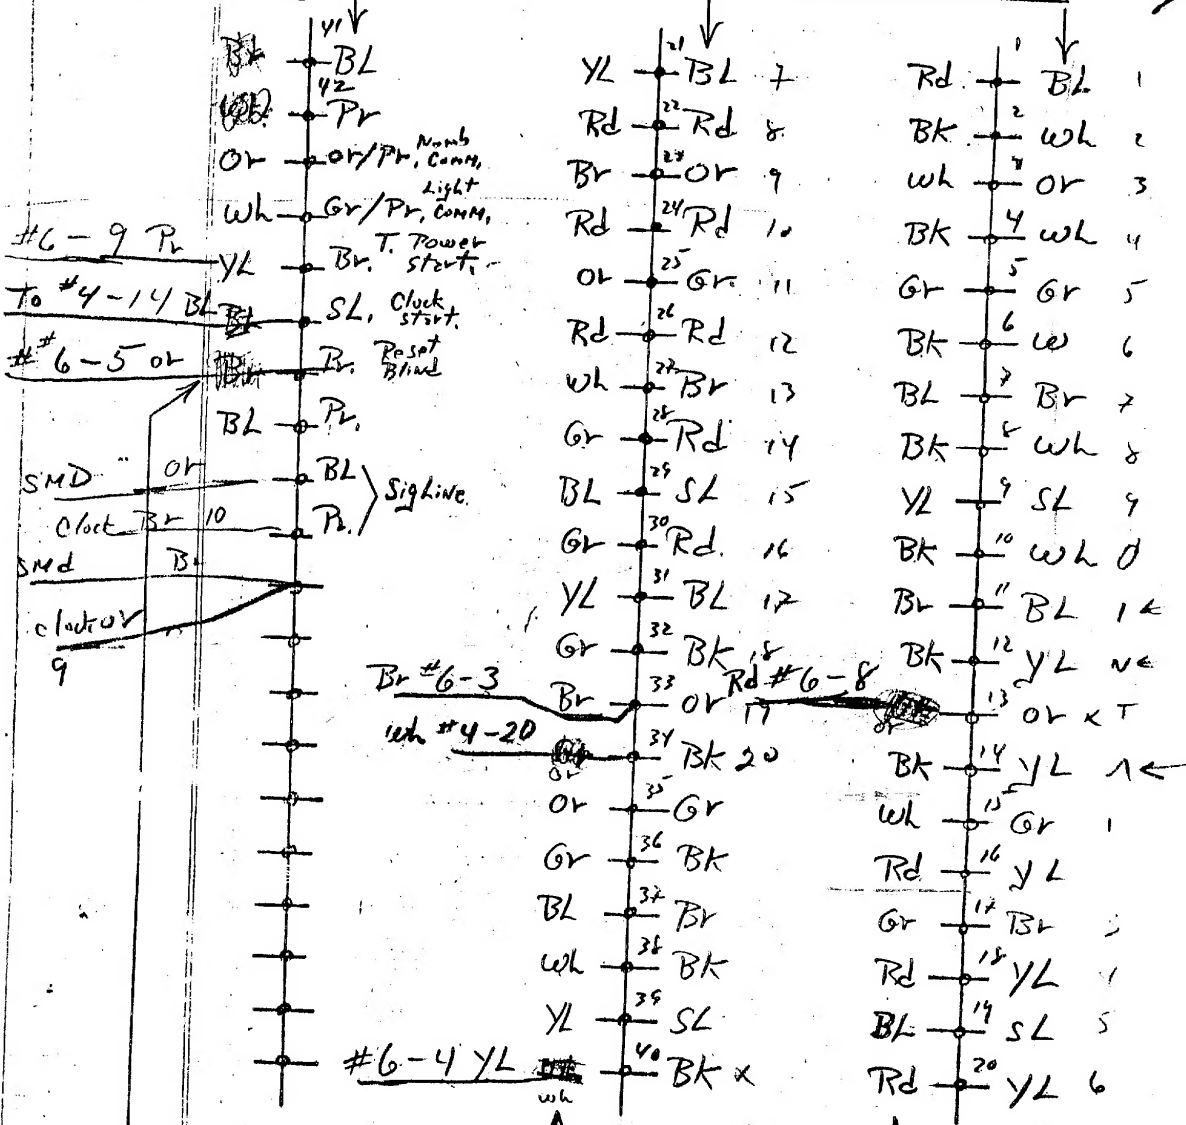 41
BL
42
Pr
Or Or/Pr, Numb Comm,
Wh Gr/Pr, Light Comm,
#6-9 Pr YL Br. T. Power start.
To #4-14 BL SL, Clock start.
#6-5 or Br. Reset Blind
BL Pr.
SMD or BL
Sig Line
Clock Br 10 Pr.
SMd Br
clock or
9
YL 21 BL 7
Rd 22 Rd 8
Br 23 Or 9
Rd 24 Rd 10
Or 25 Gr 11
Rd 26 Rd 12
Wh 27 Br 13
Gr 28 Rd 14
BL 29 SL 15
Gr 30 Rd. 16
YL 31 BL 17
Gr 32 BK 18
Br #6-3 Br 33 Or 19
wh #4-20 or 34 BK 20
Or 35 Gr
Gr 36 BK
BL 37 Br
Wh 38 BK
YL 39 SL
#6-4 YL wh 40 BK x
Rd 1 BL 1
BK 2 Wh 2
Wh 3 Or 3
BK 4 Wh 4
Gr 5 Gr 5
BK 6 W 6
BL 7 Br 7
BK 8 Wh 8
YL 9 SL 9
BK 10 Wh 0
Br 11 BL 1
BK 12 YL N
Rd #6-8 or 13 Or x T
BK 14 YL
Wh 15 Gr 1
Rd 16 YL
Gr 17 Br
Rd 18 YL
BL 19 SL 5
Rd 20 YL 6